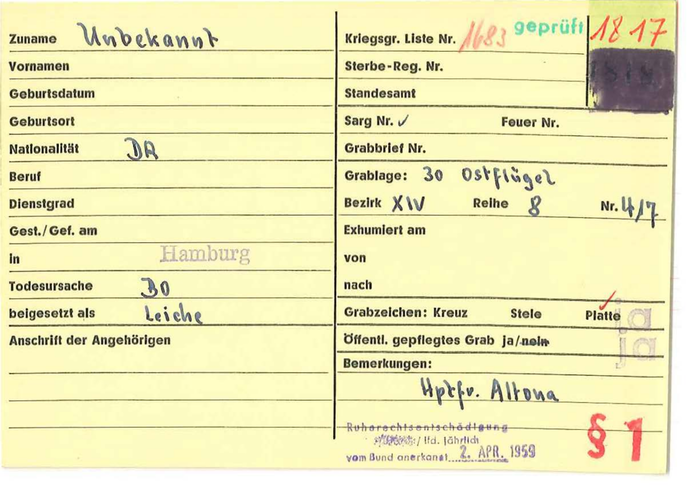 Zuname Unbekannt
Vornamen
Geburtsdatum
Geburtsort
Nationalität DR
Beruf
Dienstgrad
Gest./Gef. am
in Hamburg
Todesursache BO
beigesetzt als Leiche
Anschrift der Angehörigen
Kriegsgr. Liste Nr. 1683 geprüft 1817
Sterbe-Reg. Nr.
Standesamt
Sarg Nr. ✓ Feuer Nr.
Grabbrief Nr.
Grablage: 30 Ostflügel
Bezirk XIV Reihe 8 Nr. 4/7
Exhumiert am
von
nach
Grabzeichen: Kreuz Stele Platte ja
Öffentl. gepflegtes Grab ja/nein ja
Bemerkungen:
Hptfr. Altona
Ruherechtsentschädigung
/ lfd. jährlich
vom Bund anerkannt 2. APR. 1959
§ 1